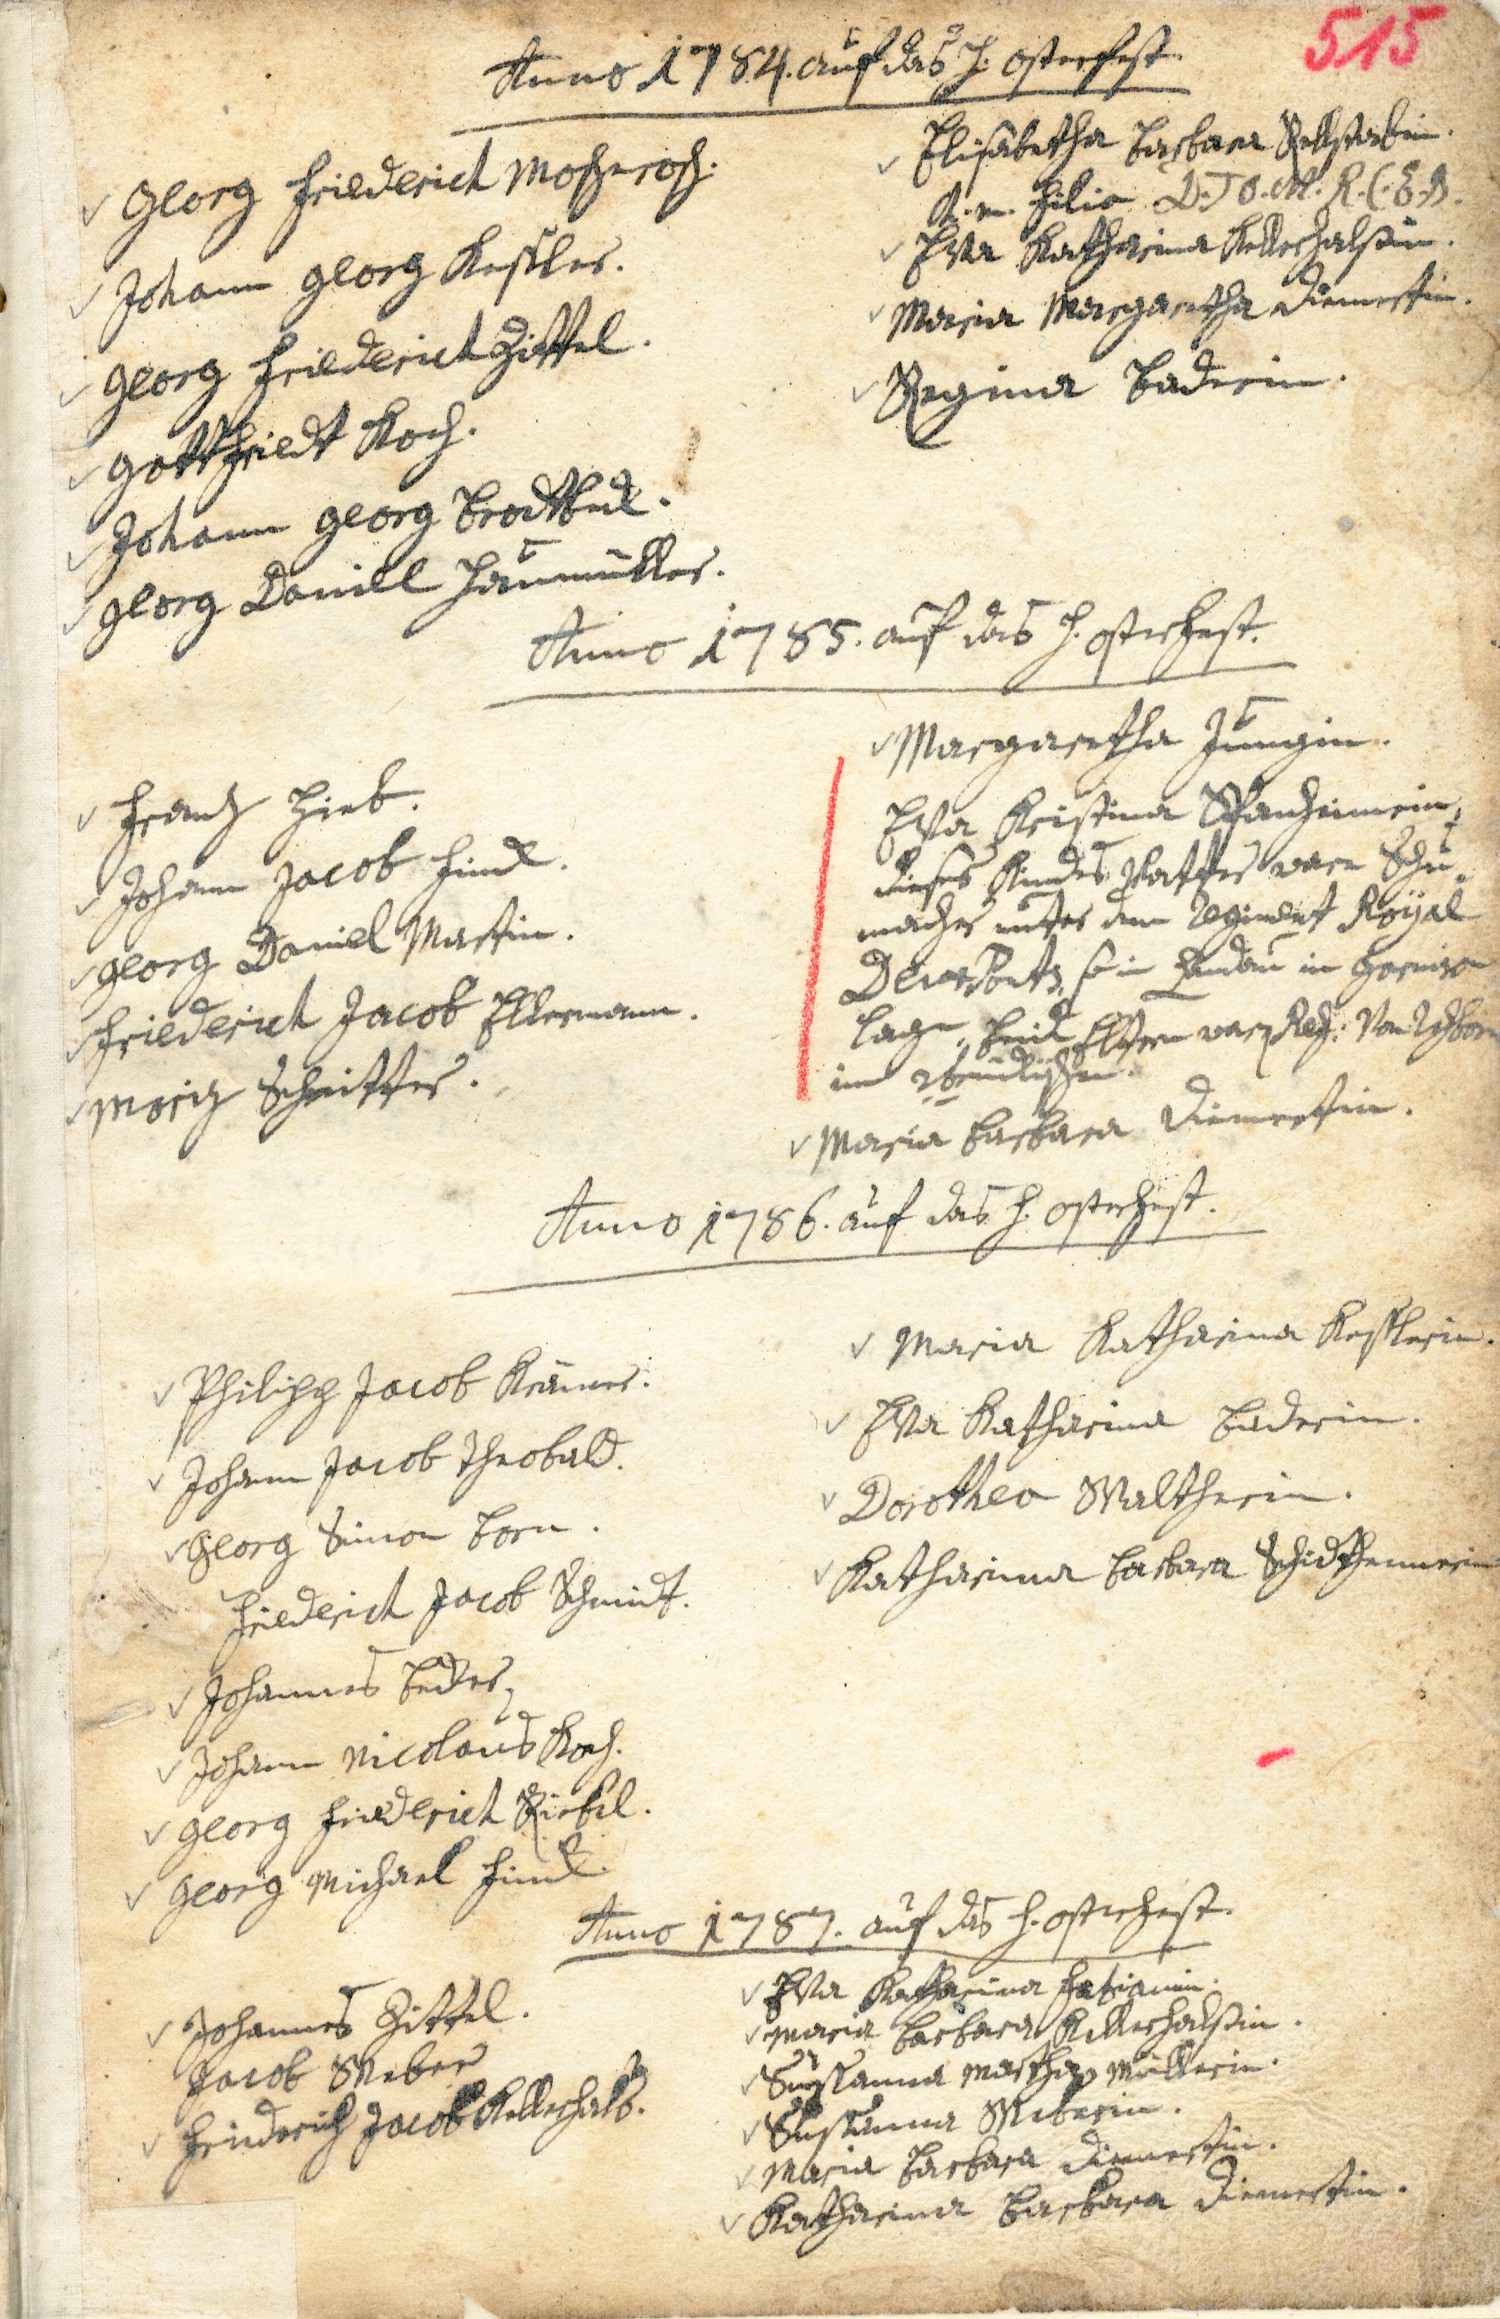 515
Anno 1784. auf das H. osterfest.
Georg friederich Moscherosch.
Johann georg Kessler.
georg friederich Zittel.
gottfriedt Koch.
Johann georg Brodtbeck.
georg Daniel Haumüller.
Elisabetha Barbara Rellstabin.
filia D. T. O. M. R. C. E. B.
Eva Katharina Kellerhalsin.
Maria Margaretha Diemertin.
Regina Baderin.
Anno 1785. auf das H. osterfest.
frantz Hieb.
Johann Jacob finck.
georg Daniel Martin.
friederich Jacob Ellermann.
Moritz Schnitter.
Margaretha Jungin.
Eva Kristina
dieses Kindes Vatter ware Schu-
macher unter dem Regiment Royal
DeuxPonts, so in Landau in garnison
lage, beide Eltern ware Ref: von
im
Maria barbara Diemertin.
Anno 1786. auf das H. osterfest.
Philipp Jacob Krämer.
Johann Jacob Theobald.
Georg Simon born.
friederich Jacob Schmidt.
Johannes Becker,
Johann Nicolaus Koch.
georg friederich Riebel.
georg Michael finck.
Maria Katharina Kesslerin.
Eva Katharina Baderin.
Dorothea Waltherin.
Katharina barbara
Anno 1787. auf das H. osterfest.
Johannes Zittel.
Jacob Weber
friederich Jacob Kellerhals.
Eva Katharina
Maria barbara Kellerhalsin.
Susanna Martha Müllerin.
Susanna Weberin.
Maria Barbara Diemertin.
Katharina Barbara Diemertin.